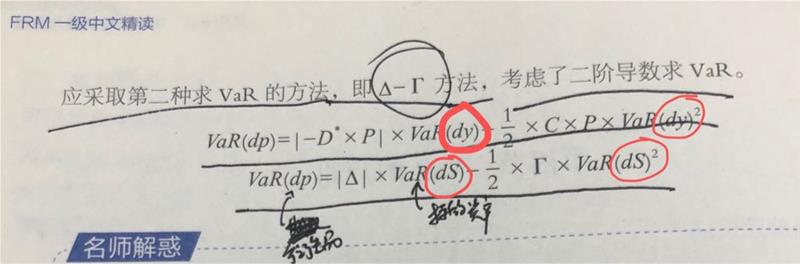 FRM 一级中文精读
应采取第二种求 VaR 的方法，即 Δ-Γ 方法，考虑了二阶导数求 VaR。
VaR(dp)=|-D*×P|×VaR(dy)-1/2×C×P×VaR(dy)²
VaR(dp)=|Δ|×VaR(dS)-1/2×Γ×VaR(dS)²
标的资产
名师解惑